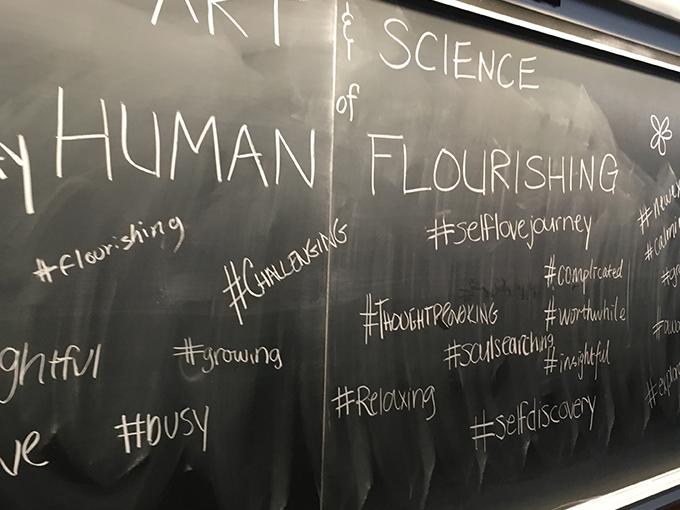 ART & SCIENCE
of
HUMAN FLOURISHING
#flourishing
#CHALLENGING
#selflovejourney
#complicated
#THOUGHTPROVOKING
#worthwhile
#growing
#soulsearching
#insightful
#Relaxing
#busy
#selfdiscovery